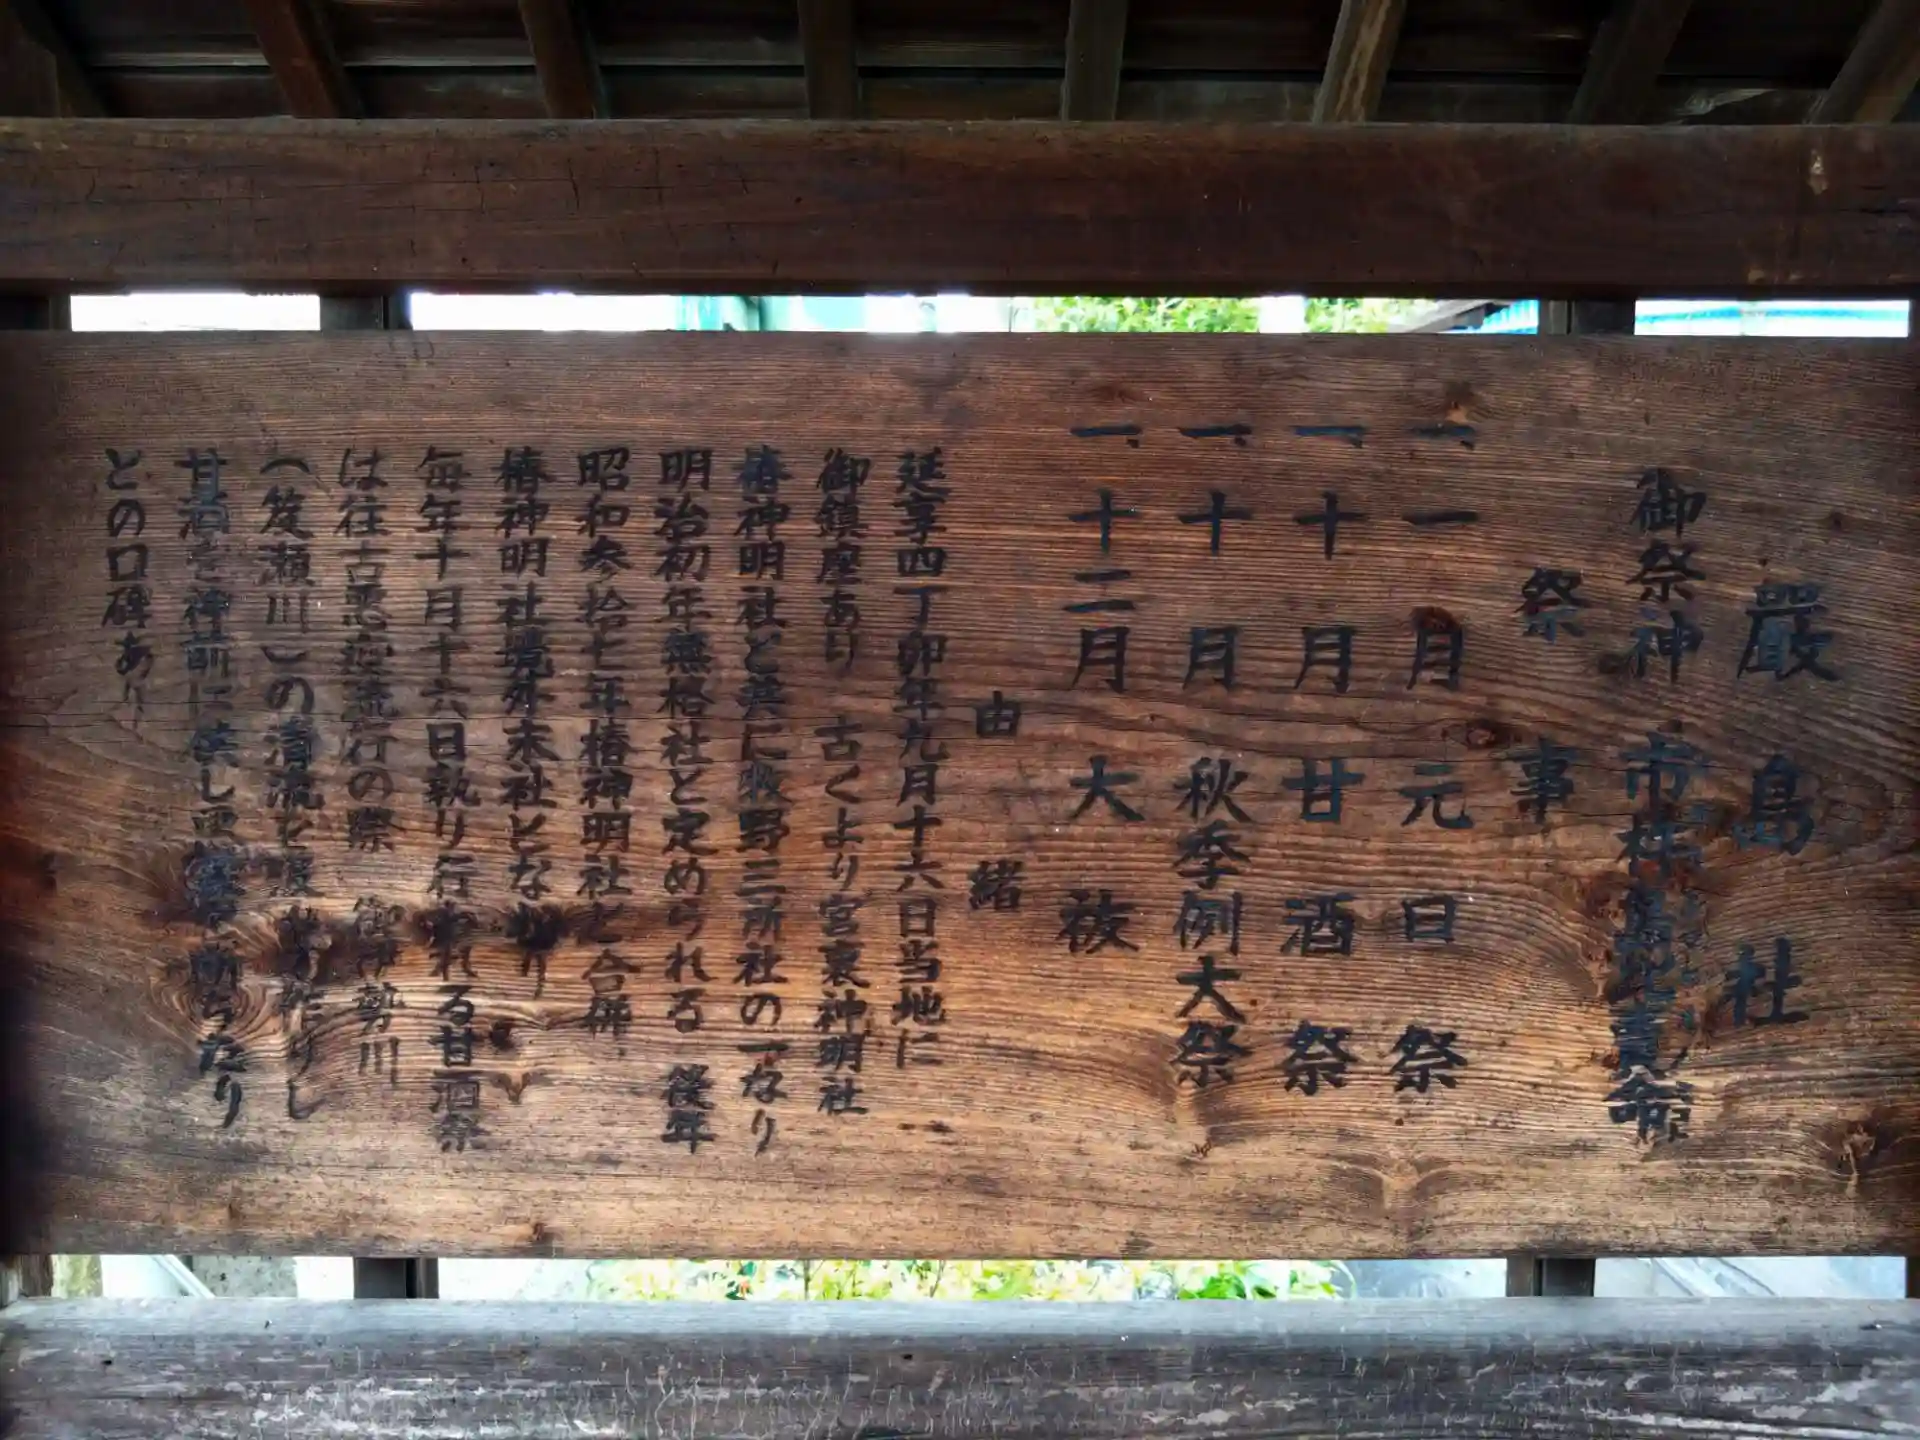 嚴島社
御祭神 市杵島比賣命
祭事
一、一月 元日祭
一、十月 甘酒祭
一、十月 秋季例大祭
一、十二月 大祓
由緒
延享四丁卯年九月十六日当地に
御鎮座あり 古くより宮裏神明社
椿神明社と共に牧野三所社の一なり
明治初年無格社と定められる 後年
昭和参拾七年椿神明社と合併
椿神明社境外末社となれり
毎年十月十六日執り行われる甘酒祭
は往古悪疫流行の際 御伊勢川
(笈瀬川)の清流を
甘酒を神前に供し悪疫を断ちたり
との口碑あり